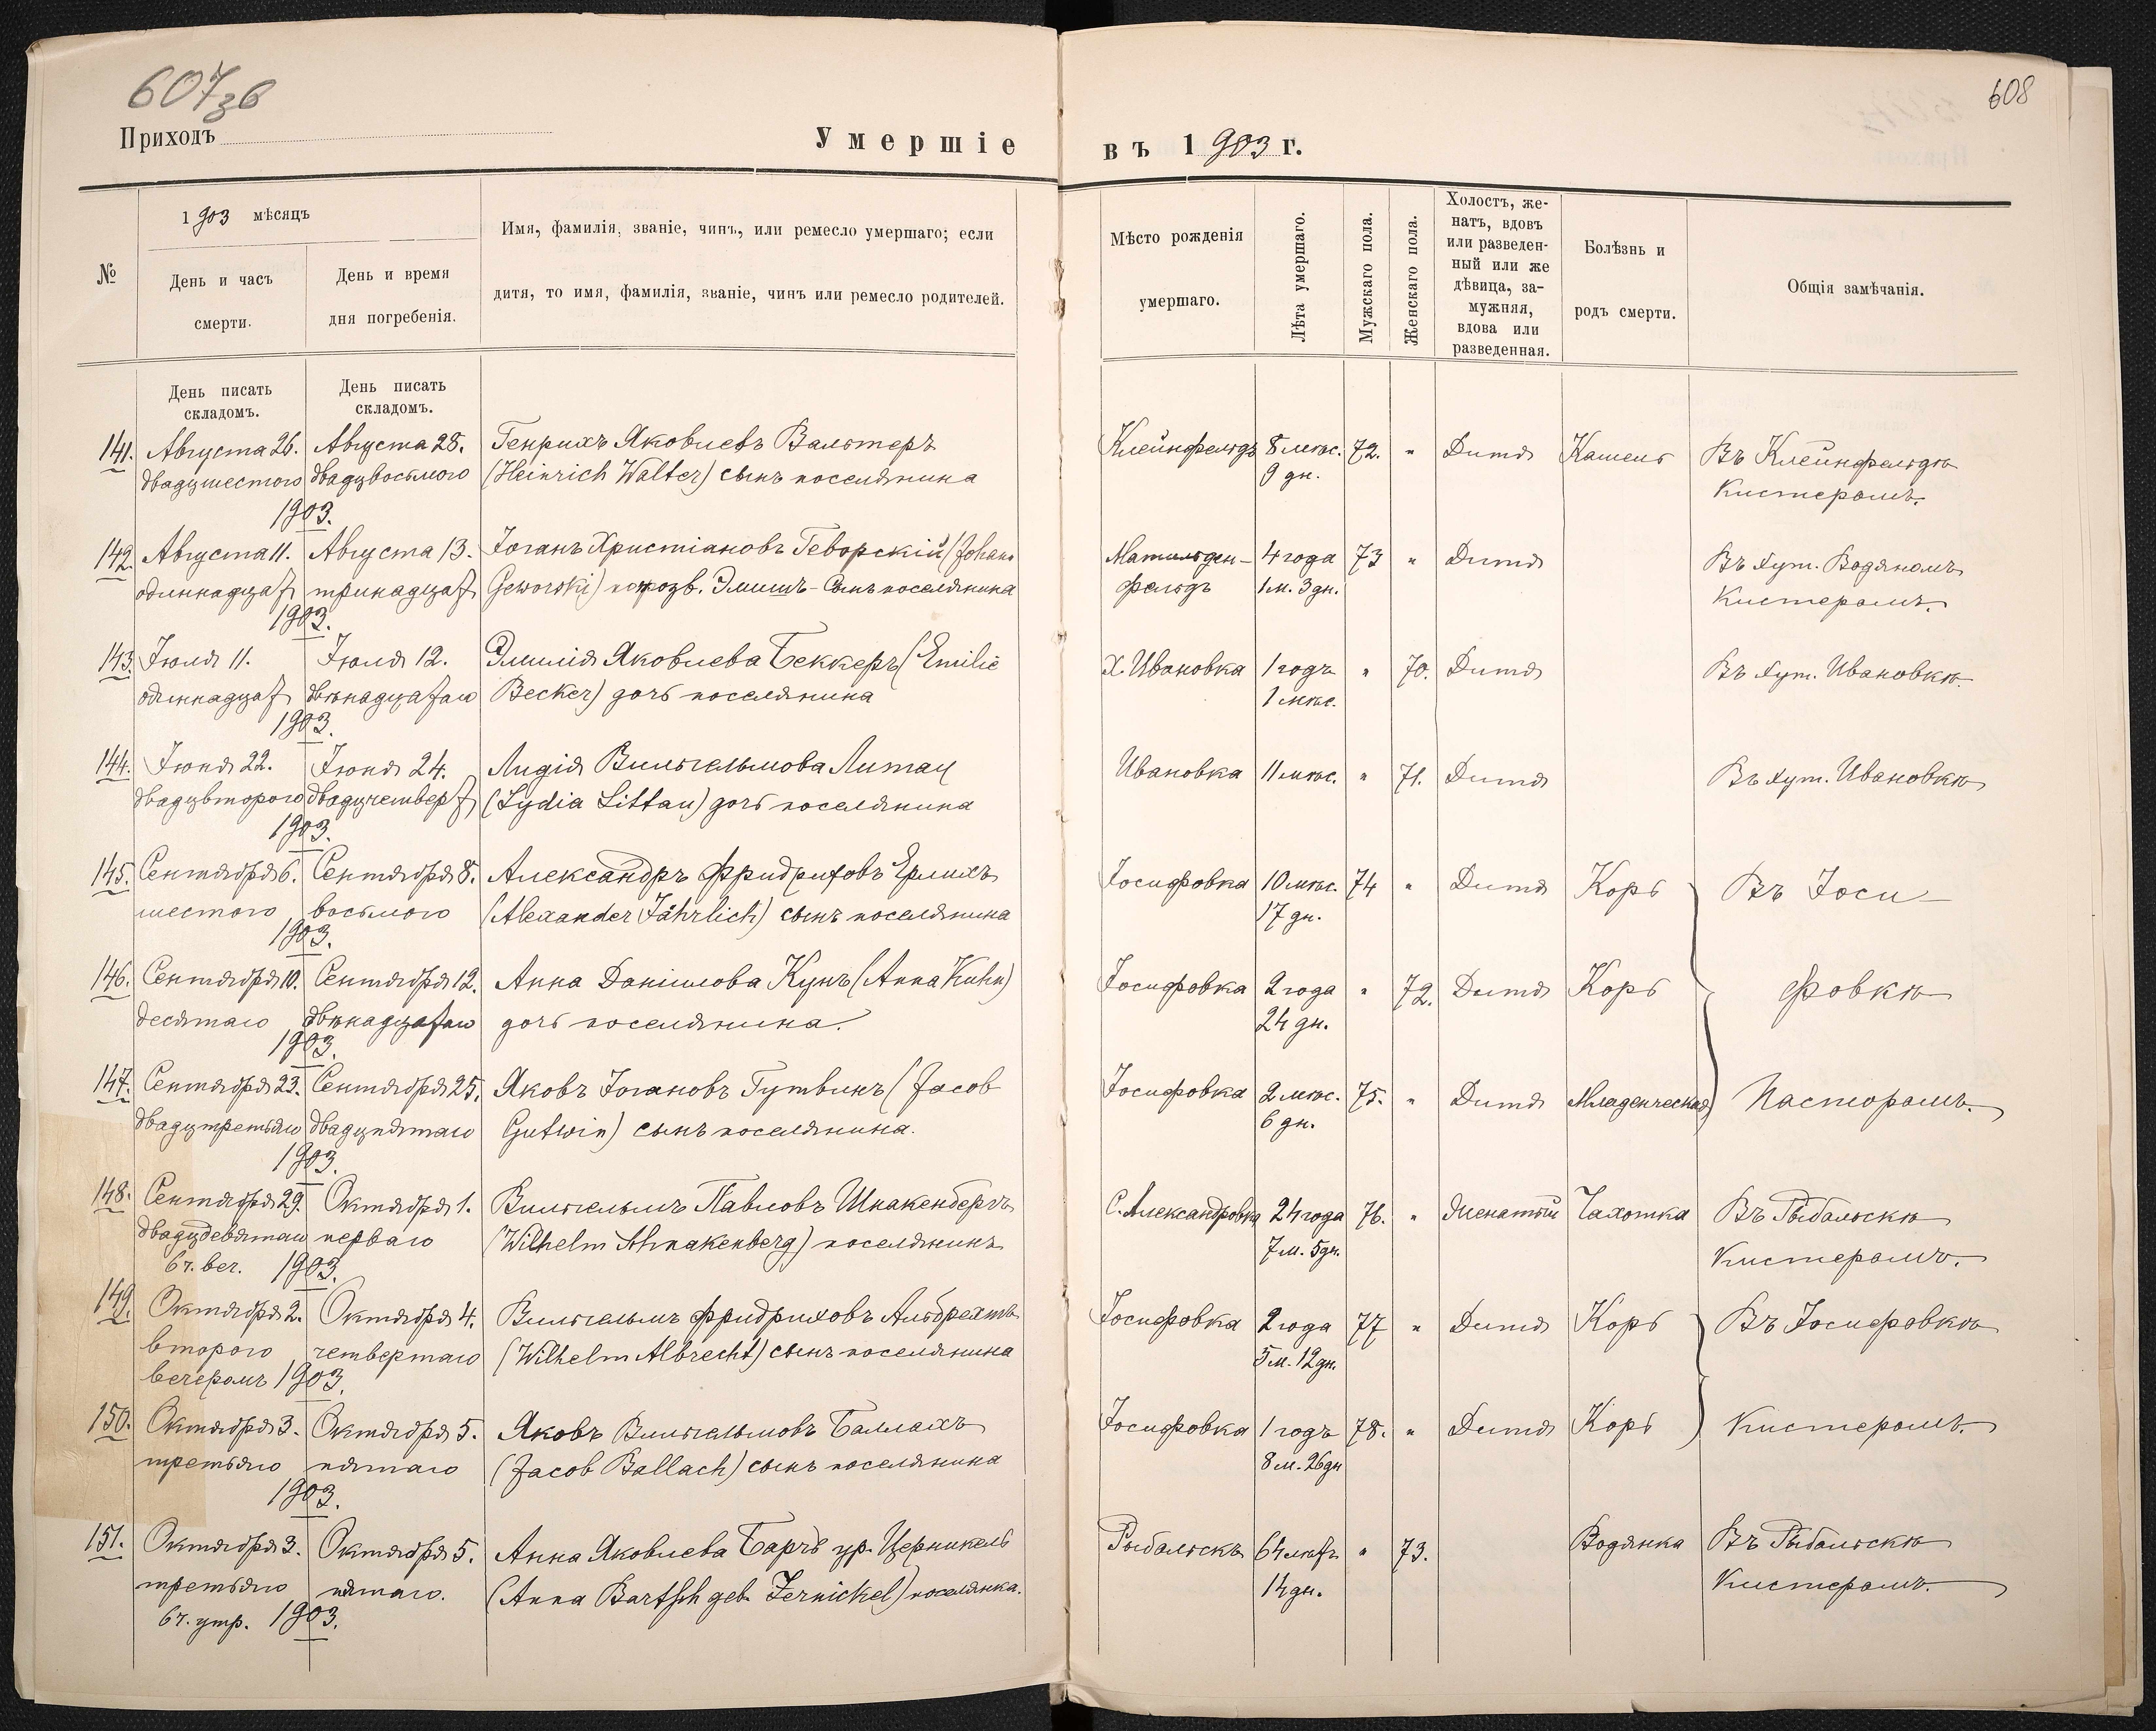 607зв
608
Приходъ
Умершіе
въ 1903 г.
№
1903 мѣсяцъ
День и часъ
смерти.
День и время
дня погребенія.
Имя, фамилія, званіе, чинъ, или ремесло умершаго; если
дитя, то имя, фамилія, званіе, чинъ или ремесло родителей.
Мѣсто рожденія
умершаго.
Лѣта умершаго.
Мужскаго пола.
Женскаго пола.
Холостъ, же-
натъ, вдовъ
или разведен-
ный или же
дѣвица, за-
мужняя,
вдова или
разведенная.
Болѣзнь и
родъ смерти.
Общія замѣчанія.
День писать
складомъ.
День писать
складомъ.
141. Августа 26. Августа 28. Генрихъ Яковлевъ Вальтеръ Клейнфельдъ 8 мѣс. 72. " Дитя Кашель Въ Клейнфельдѣ
двадцшестого двадцвосьмого (Heinrich Walter) сынъ поселянина 9 дн. Кистеромъ.
1903.
142. Августа 11. Августа 13. Іоганъ Христіановъ Геворскій (Johann Матильден- 4 года 73 " Дитя Въ хут. Водяномъ
одиннадцат тринадцат Geworski) прозв. Эмишъ - Сынъ поселянина фельдъ 1 м. 3 дн. Кистеромъ.
1903.
143. Іюля 11. Іюля 12. Эмилія Яковлева Беккеръ (Emilie Х. Ивановка 1 годъ " 70. Дитя Въ хут. Ивановкѣ.
одиннадцат двѣнадцатаго Becker) дочь поселянина 1 мѣс.
1903.
144. Іюня 22. Іюня 24. Лидія Вильгельмова Литац Ивановка 11 мѣс. " 71. Дитя Въ хут. Ивановкѣ
двадцвторого двадцчетверт (Lydia Littau) дочь поселянина
1903.
145. Сентября 6. Сентября 8. Александръ Фридриховъ Ерлихъ Іосифовка 10 мѣс. 74 " Дитя Корь Въ Іоси-
шестого восьмого (Alexander Jährlich) сынъ поселянина 17 дн.
1903.
146. Сентября 10. Сентября 12. Анна Даніилова Кунъ (Anna Kuhn) Іосифовка 2 года " 72. Дитя Корь фовкѣ
десятаго двѣнадцатаго дочь поселянина. 24 дн.
1903.
147. Сентября 23. Сентября 25. Яковъ Іогановъ Гутвинъ (Jacob Іосифовка 2 мѣс. 75. " Дитя Младенческая Пасторомъ.
двадцтретьяго двадцпятаго Gutwin) сынъ поселянина. 6 дн.
1903.
148. Сентября 29. Октября 1. Вильгельмъ Павловъ Шнакенбергъ С. Александровка 24 года 76. " Женатый Чахотка Въ Рыбальскѣ
двадцдевятаго перваго (Wilhelm Schnakenberg) поселянинъ 7 м. 5 дн. Кистеромъ.
6 ч. веч. 1903.
149. Октября 2. Октября 4. Вильгельмъ Фридриховъ Альбрехтъ Іосифовка 2 года 77 " Дитя Корь Въ Іосифовкѣ
второго четвертаго (Wilhelm Albrecht) сынъ поселянина 5 м. 12 дн.
вечеромъ 1903.
150. Октября 3. Октября 5. Яковъ Вильгельмовъ Баллахъ Іосифовка 1 годъ 78. " Дитя Корь Кистеромъ.
третьяго пятаго (Jacob Ballach) сынъ поселянина 8 м. 26 дн
1903.
151. Октября 3. Октября 5. Анна Яковлева Барчъ ур. Церникель Рыбальскъ 64 лѣтъ " 73. Водянка Въ Рыбальскѣ
третьяго пятаго. (Anna Bartsch geb. Zernickel) поселянка. 14 дн. Кистеромъ.
6 ч. утр. 1903.